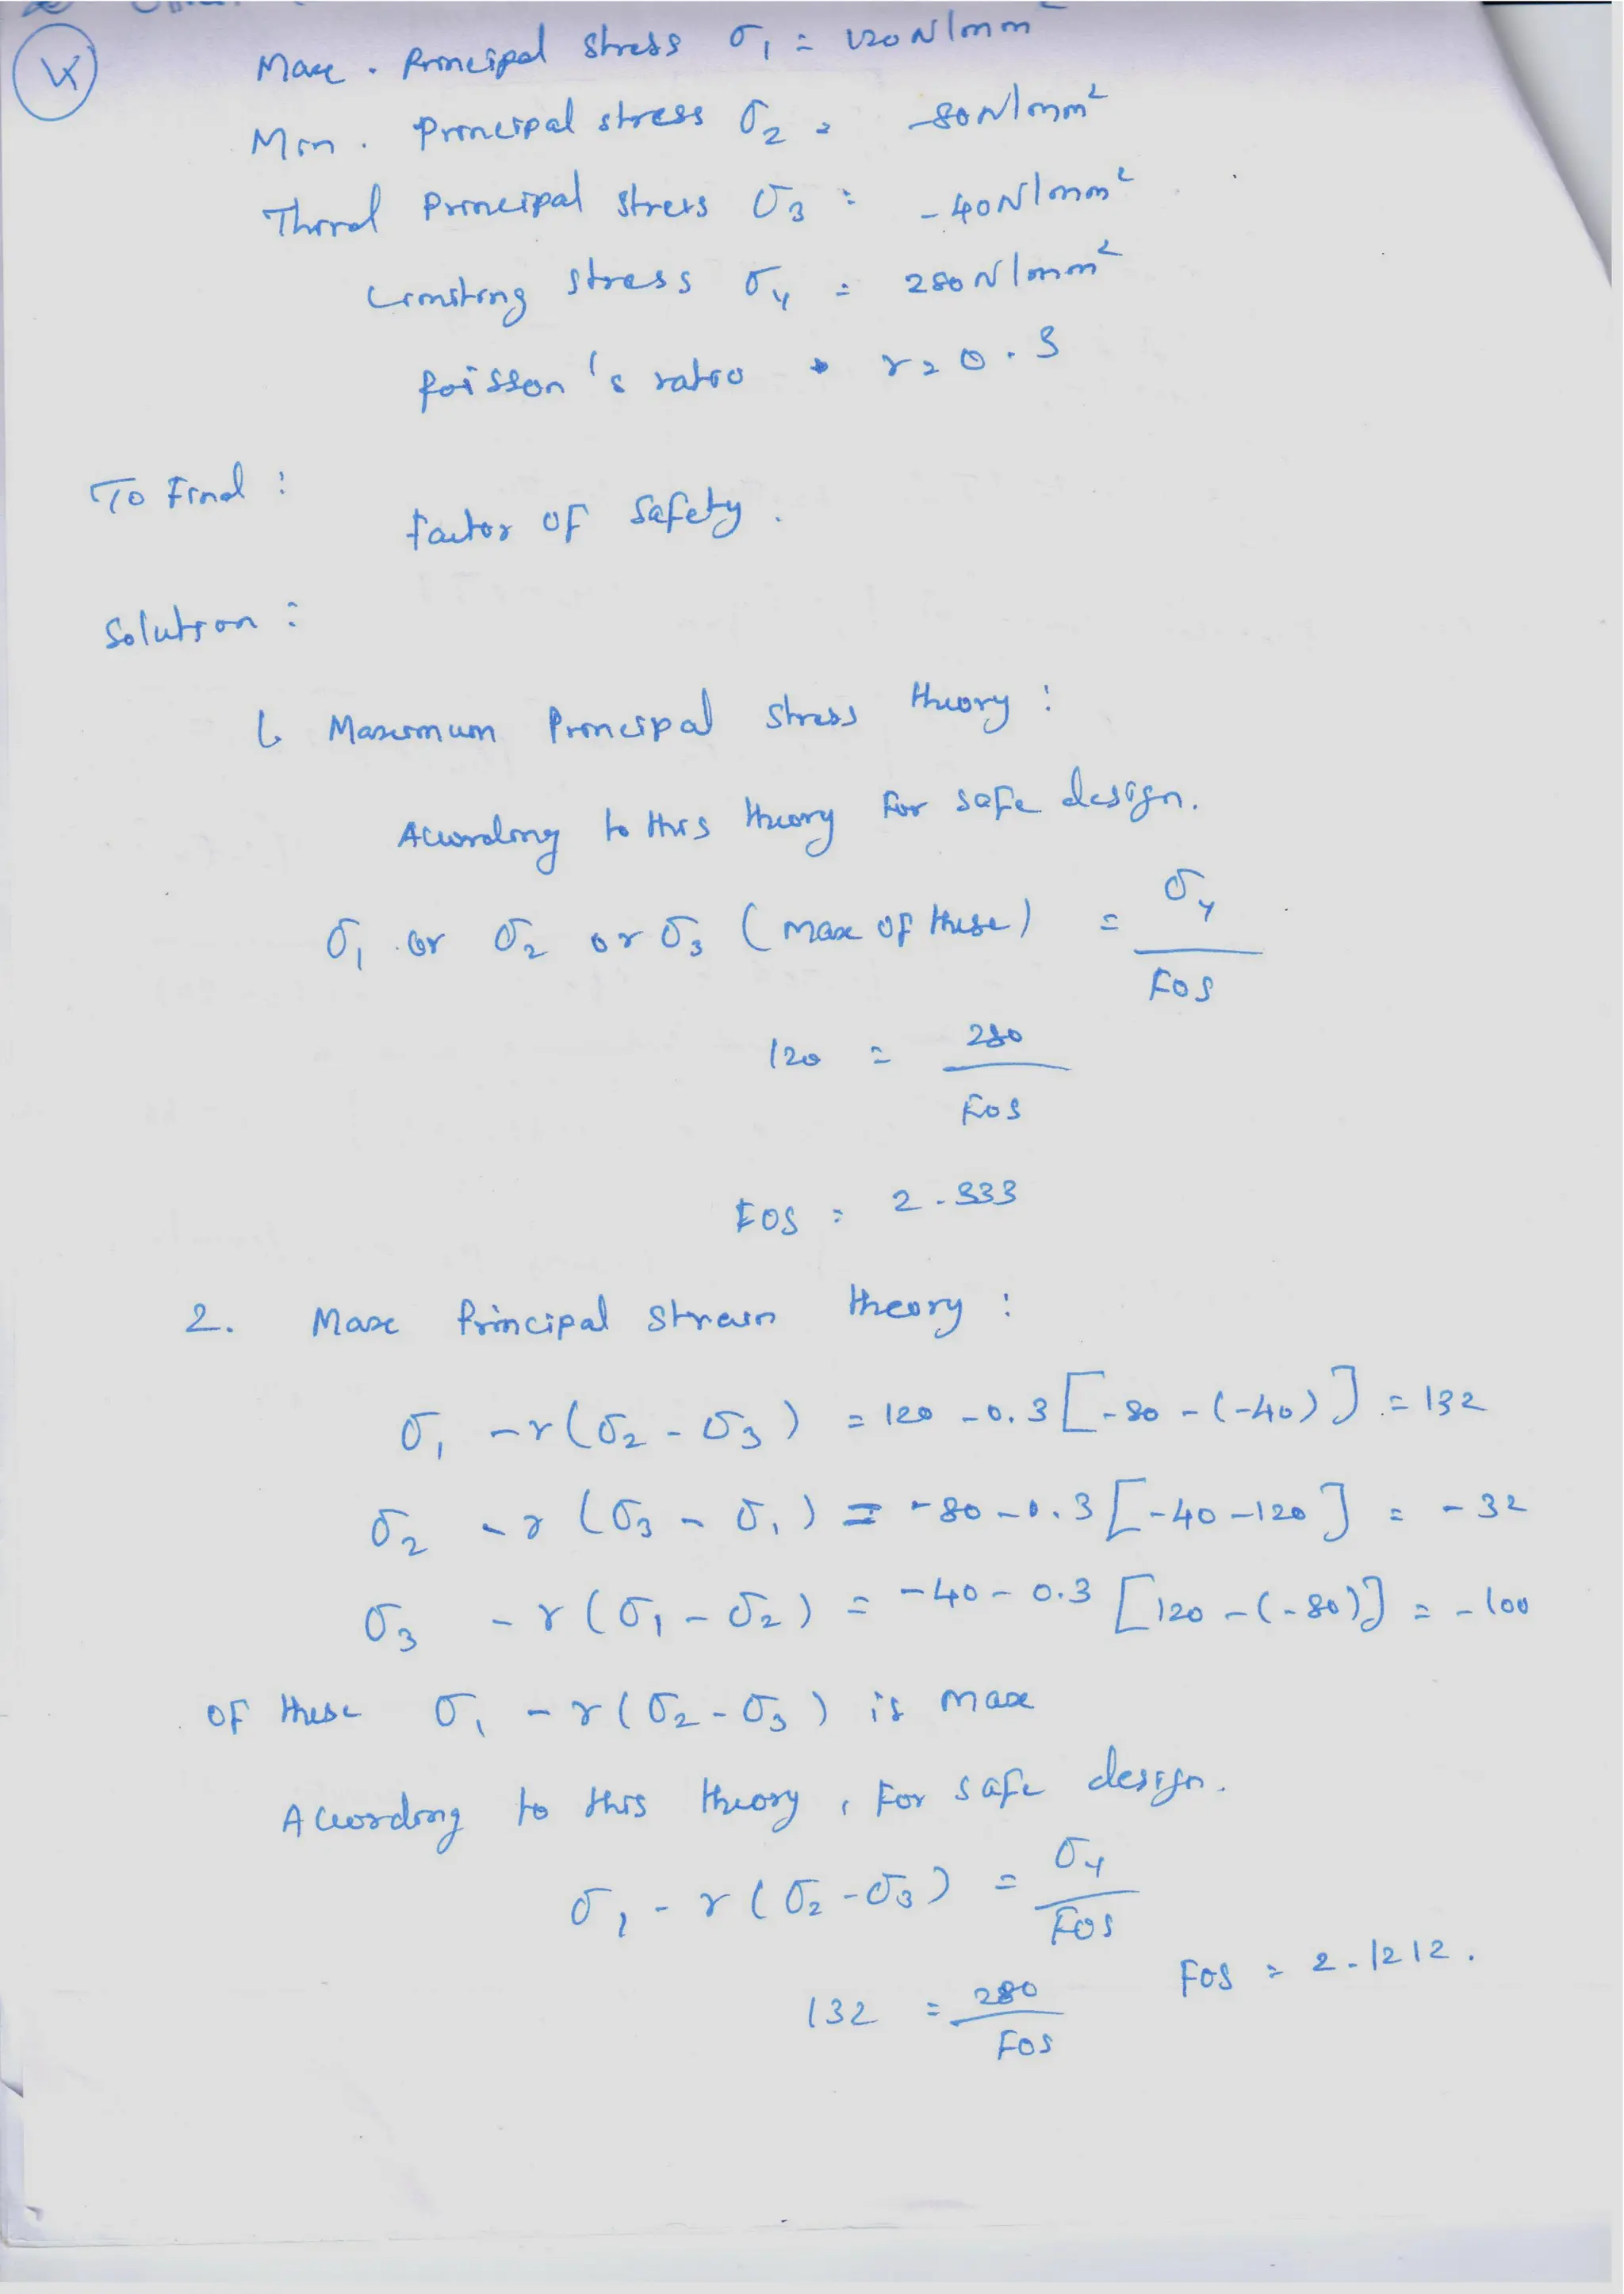 4
Max. Principal stress σ₁ = 120 N/mm²
Min. Principal stress σ₂ = -80 N/mm²
Third Principal stress σ₃ = -40 N/mm²
Limiting stress σy = 280 N/mm²
Poisson's ratio r = 0.3
To Find :
Factor of Safety .
Solution :
1. Maximum Principal stress theory :
According to this theory for safe design.
σ₁ or σ₂ or σ₃ (max of these) = σy / FOS
120 = 280 / FOS
FOS = 2.333
2. Max Principal strain theory :
σ₁ - r(σ₂ - σ₃) = 120 - 0.3[-80 - (-40)] = 132
σ₂ - r(σ₃ - σ₁) = -80 - 0.3[-40 - 120] = -32
σ₃ - r(σ₁ - σ₂) = -40 - 0.3[120 - (-80)] = -100
of these σ₁ - r(σ₂ - σ₃) is max
According to this theory, for safe design.
σ₁ - r(σ₂ - σ₃) = σy / FOS
132 = 280 / FOS FOS = 2.1212.